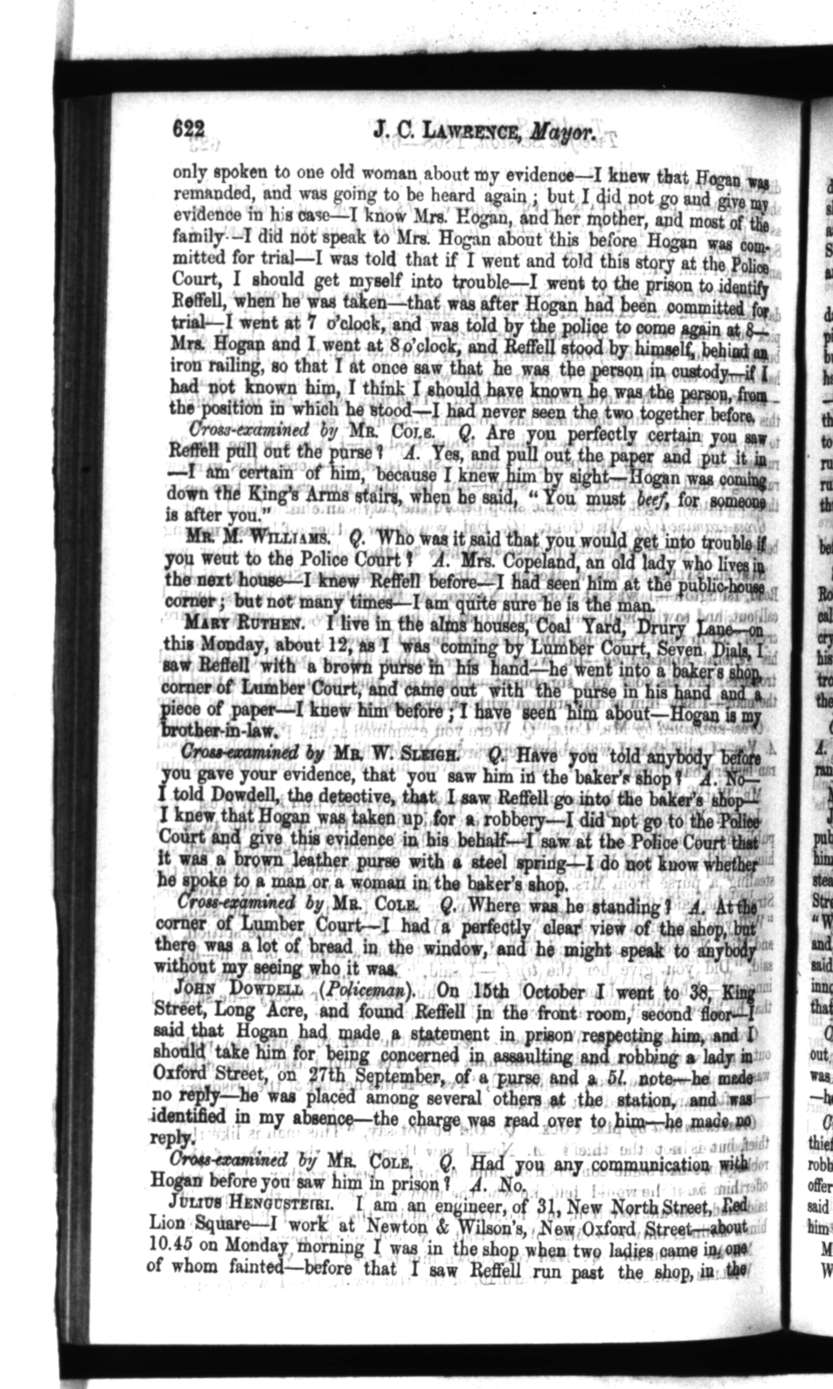 622 J. C. LAWRENCE, Mayor.
only spoken to one old woman about my evidence—I knew that Hogan was
remanded, and was going to be heard again ; but I did not go and give my
evidence in his case—I know Mrs. Hogan, and her mother, and most of the
family—I did not speak to Mrs. Hogan about this before Hogan was com-
mitted for trial—I was told that if I went and told this story at the Police
Court, I should get myself into trouble—I went to the prison to identify
Reffell, when he was taken—that was after Hogan had been committed for
trial—I went at 7 o'clock, and was told by the police to come again at 8—
Mrs. Hogan and I went at 8 o'clock, and Reffell stood by himself, behind an
iron railing, so that I at once saw that he was the person in custody—if I
had not known him, I think I should have known he was the person, from
the position in which he stood—I had never seen the two together before.
Cross-examined by MR. COLE. Q. Are you perfectly certain you saw
Reffell pull out the purse? A. Yes, and pull out the paper and put it in
—I am certain of him, because I knew him by sight—Hogan was coming
down the King's Arms stairs, when he said, "You must beef, for someone
is after you."
MR. M. WILLIAMS. Q. Who was it said that you would get into trouble if
you went to the Police Court? A. Mrs. Copeland, an old lady who lives in
the next house—I knew Reffell before—I had seen him at the public-house
corner; but not many times—I am quite sure he is the man.
MARY RUTHEN. I live in the alms houses, Coal Yard, Drury Lane—on
this Monday, about 12, as I was coming by Lumber Court, Seven Dials, I
saw Reffell with a brown purse in his hand—he went into a baker's shop,
corner of Lumber Court, and came out with the purse in his hand and a
piece of paper—I knew him before ; I have seen him about—Hogan is my
brother-in-law.
Cross-examined by MR. W. SLEIGH. Q. Have you told anybody before
you gave your evidence, that you saw him in the baker's shop? A. No—
I told Dowdell, the detective, that I saw Reffell go into the baker's shop—
I knew that Hogan was taken up for a robbery—I did not go to the Police
Court and give this evidence in his behalf—I saw at the Police Court that
it was a brown leather purse with a steel spring—I do not know whether
he spoke to a man or a woman in the baker's shop.
Cross-examined by MR. COLE. Q. Where was he standing? A. At the
corner of Lumber Court—I had a perfectly clear view of the shop, but
there was a lot of bread in the window, and he might speak to anybody
without my seeing who it was.
JOHN DOWDELL (Policeman). On 15th October I went to 38, King
Street, Long Acre, and found Reffell in the front room, second floor—I
said that Hogan had made a statement in prison respecting him, and I
should take him for being concerned in assaulting and robbing a lady in
Oxford Street, on 27th September, of a purse and a 5l. note—he made
no reply—he was placed among several others at the station, and was
identified in my absence—the charge was read over to him—he made no
reply.
Cross-examined by MR. COLE. Q. Had you any communication with
Hogan before you saw him in prison? A. No.
JULIUS HENGUSTEIRI. I am an engineer, of 31, New North Street, Red
Lion Square—I work at Newton & Wilson's, New Oxford Street—about
10.45 on Monday morning I was in the shop when two ladies came in, one
of whom fainted—before that I saw Reffell run past the shop, in the